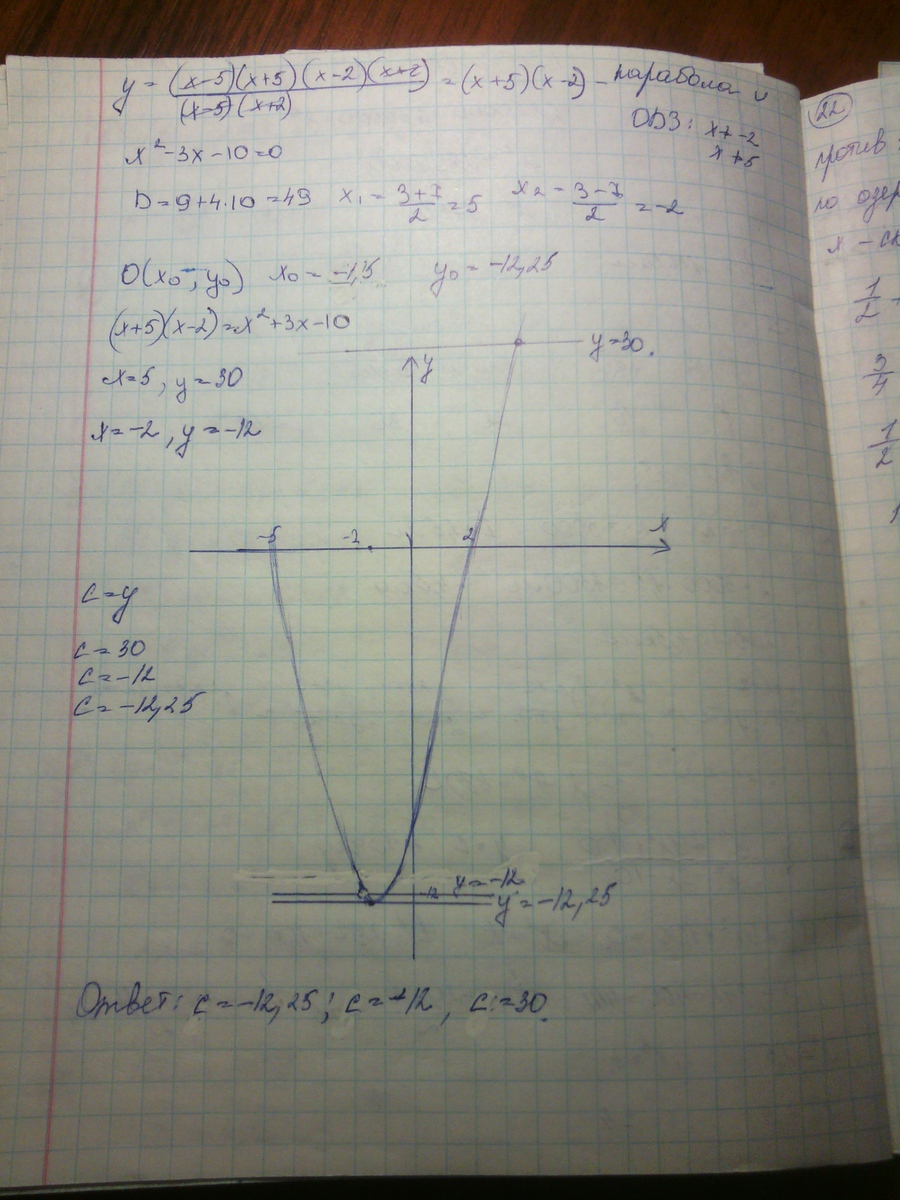 y = (x-5)(x+5)(x-2)(x+2) / (x-5)(x+2) = (x+5)(x-2) - парабола и
ОДЗ: x ≠ -2
x ≠ 5
x² - 3x - 10 = 0
D = 9 + 4·10 = 49 x₁ = (3+7)/2 = 5 x₂ = (3-7)/2 = -2
O(x₀; y₀) x₀ = -1,5 y₀ = -12,25
(x+5)(x-2) = x² + 3x - 10
x = 5, y = 30
x = -2, y = -12
y = 30.
y
-5 -2 2 x
c = y
c = 30
c = -12
c = -12,25
-12 y = -12
y = -12,25
Ответ: c = -12,25; c = -12, c = 30.
22
против
по озер
x - ск
1/2 +
3/4
1/2
1